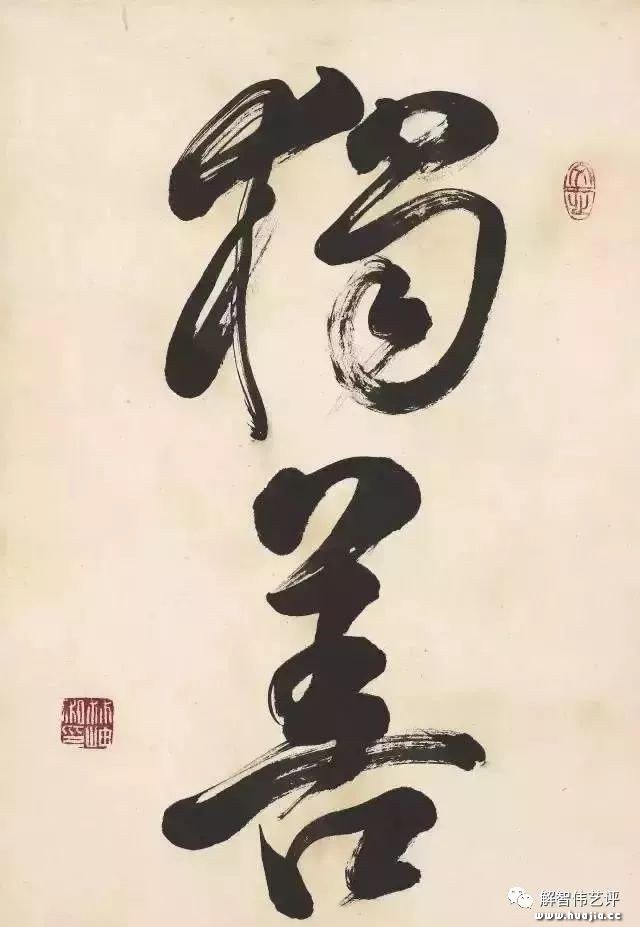 獨
善
解智伟艺评
www.huajia.cc